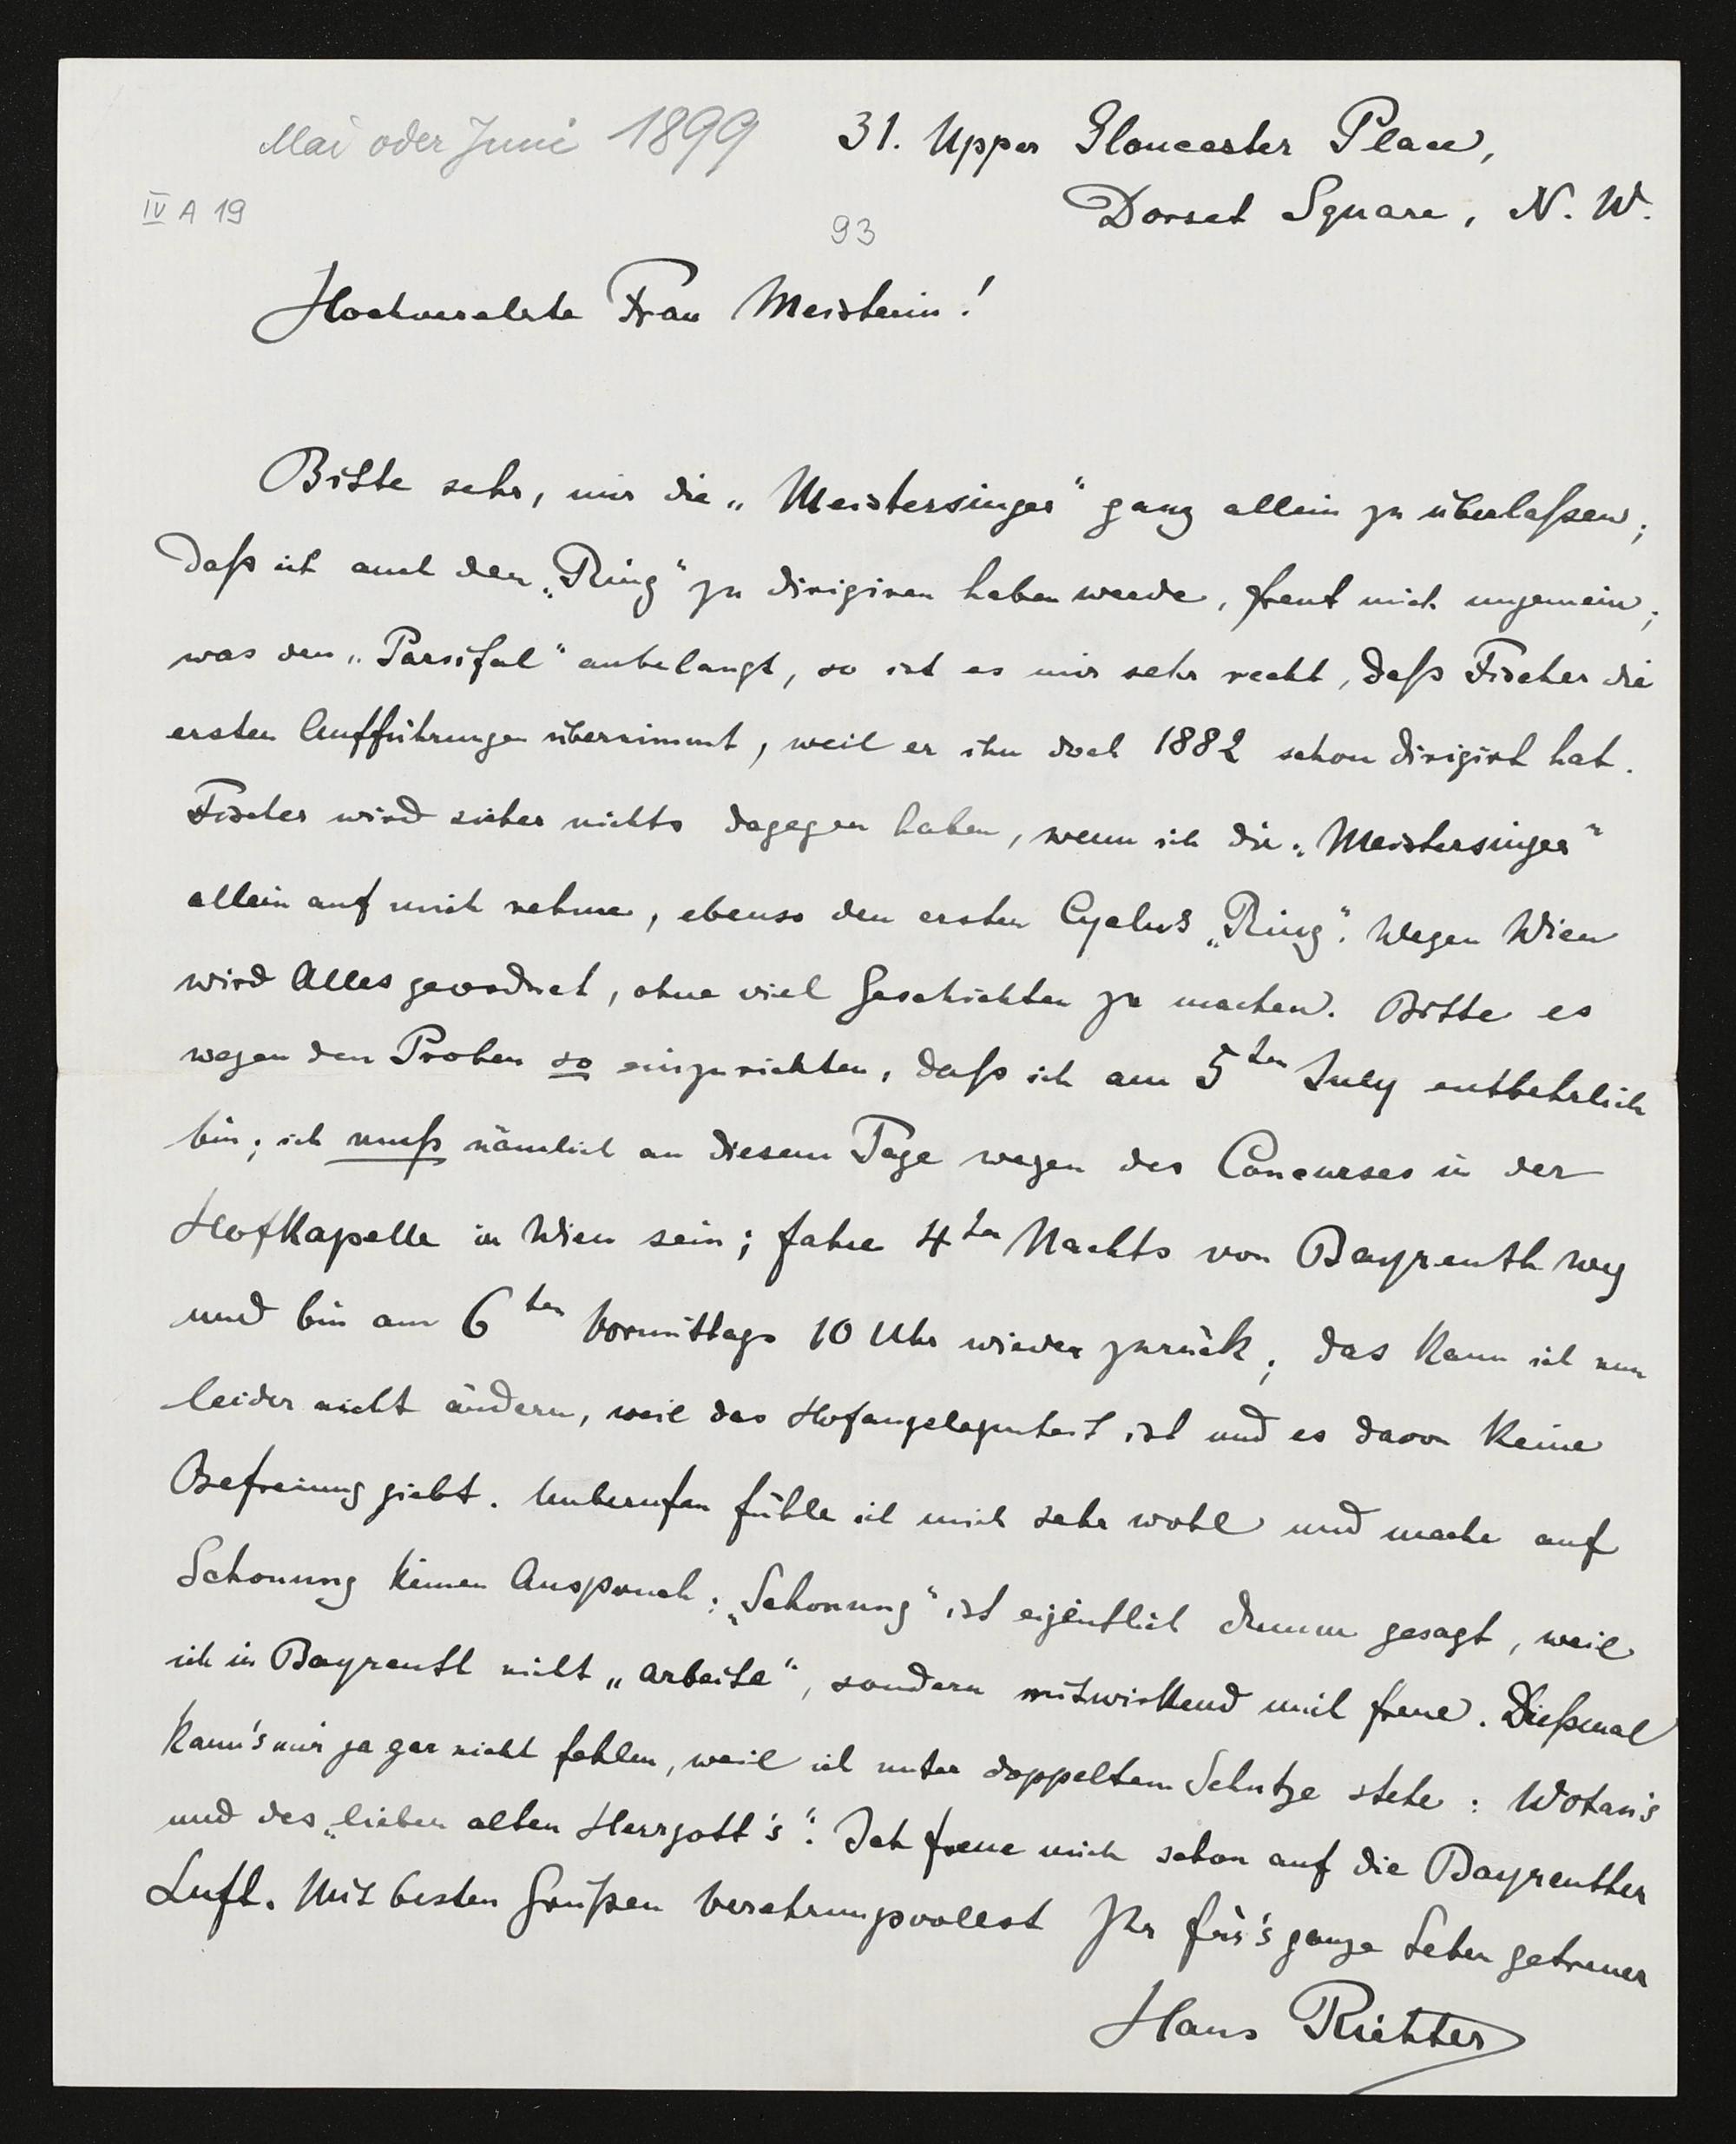 Mai oder Juni 1899
31. Upper Gloucester Place,
IV A 19
Dorset Square, N. W.
93
Hochverehrte Frau Meisterin!
Bitte sehr, mir die „Meistersinger“ ganz allein zu überlaßen;
daß ich auch den „Ring“ zu dirigiren haben werde, freut mich ungemein;
was den „Parsifal“ anbelangt, so ist es mir sehr recht, daß Fischer die
ersten Aufführungen übernimmt, weil er ihn doch 1882 schon dirigirt hat.
Fischer wird sicher nichts dagegen haben, wenn ich die „Meistersinger“
allein auf mich nehme, ebenso den ersten Cyclus „Ring“. Wegen Wien
wird Alles geordnet, ohne viel Geschichten zu machen. Bitte es
wegen den Proben so einzurichten, daß ich am 5ten July entbehrlich
bin; ich muß nämlich an diesem Tage wegen des Concurses in der
Hofkapelle in Wien sein; fahre 4ten Nachts von Bayreuth weg
und bin am 6ten Vormittags 10 Uhr wieder zurück; das kann ich nun
leider nicht ändern, weil das Hofangelegenheit ist und es davon keine
Befreiung giebt. Unberufen fühle ich mich sehr wohl und mache auf
Schonung keinen Anspruch; „Schonung“ ist eigentlich dumm gesagt, weil
ich in Bayreuth nicht „arbeite“, sondern mitwirkend mich freue. Dießmal
kann's mir ja gar nicht fehlen, weil ich unter doppeltem Schutze stehe: Wotan's
und des „lieben alten Herrgott's“. Ich freue mich schon auf die Bayreuther
Luft. Mit besten Grüßen verehrungsvollst Ihr für's ganze Leben getreuer
Hans Richter